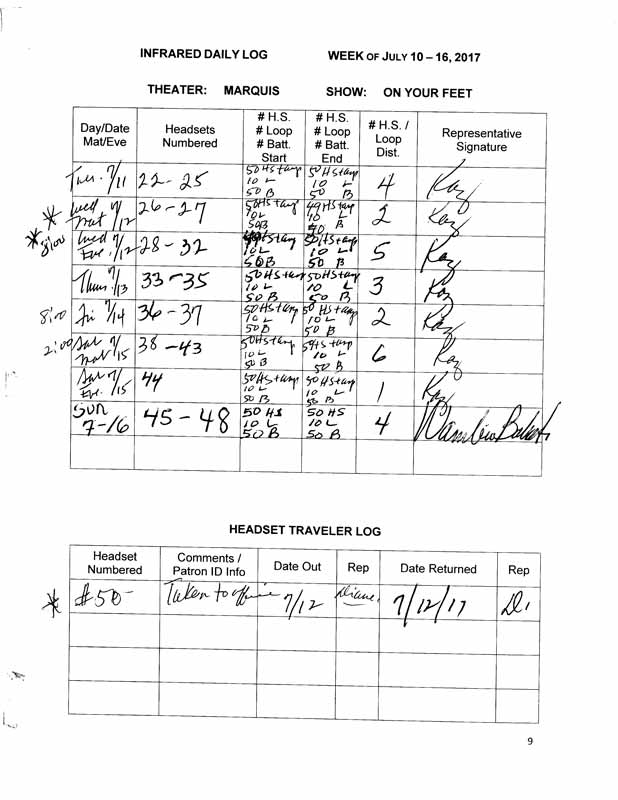 INFRARED DAILY LOG WEEK OF JULY 10 – 16, 2017
THEATER: MARQUIS SHOW: ON YOUR FEET
Day/Date Mat/Eve
Headsets Numbered
# H.S. # Loop # Batt. Start
# H.S. # Loop # Batt. End
# H.S. / Loop Dist.
Representative Signature
Tues. 7/11 22-25 50 HS tang 10 L 50 B 50 HS tang 10 L 50 B 4 Kaz
* Wed Mat 7/12 26-27 50 HS tang 10 L 50 B 49 HS tang 10 L B 2 Kaz
* 8:00 Wed Eve. 7/12 28-32 HS tang 10 L 50 B HS tang 10 L 50 B 5 Kaz
Thurs. 7/13 33-35 50 HS tang 10 L 50 B 50 HS tang 10 L 50 B 3 Kaz
8:00 Fri 7/14 36-37 50 HS tang 10 L 50 B 50 HS tang 10 L 50 B 2 Kaz
2:00 Sat mat 7/15 38-43 50 HS tang 10 L 50 B HS tang 10 L 50 B 6 Kaz
Sat Eve. 7/15 44 50 HS tang 10 L 50 B 50 HS tang 10 L 50 B 1 Kaz
SUN 7-16 45-48 50 HS 10 L 50 B 50 HS 10 L 50 B 4
HEADSET TRAVELER LOG
Headset Numbered
Comments / Patron ID Info
Date Out
Rep
Date Returned
Rep
* #50 Taken to office 7/12 Diane. 7/12/17 Di
9